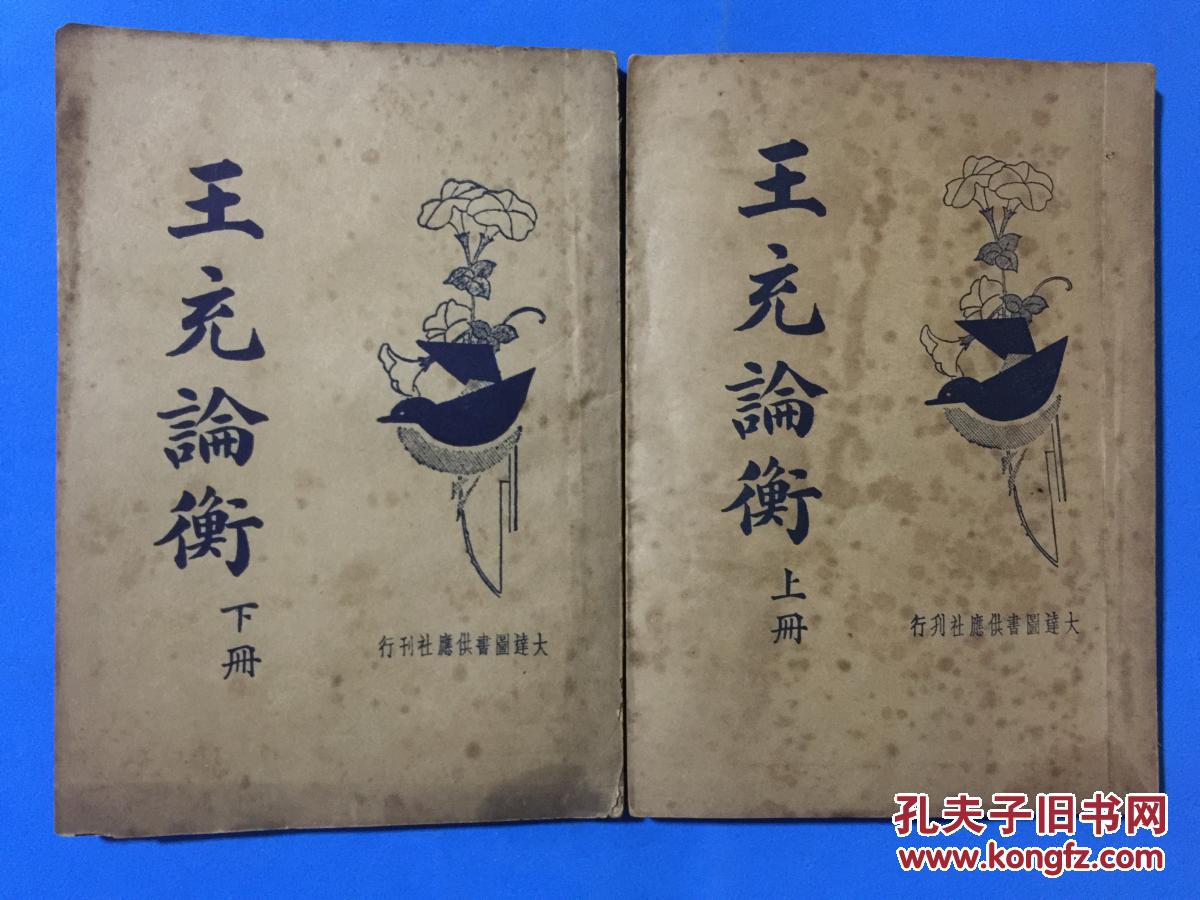 王充論衡
下冊
大達圖書供應社刊行
王充論衡
上冊
大達圖書供應社刋行
孔夫子旧书网
www.kongfz.com